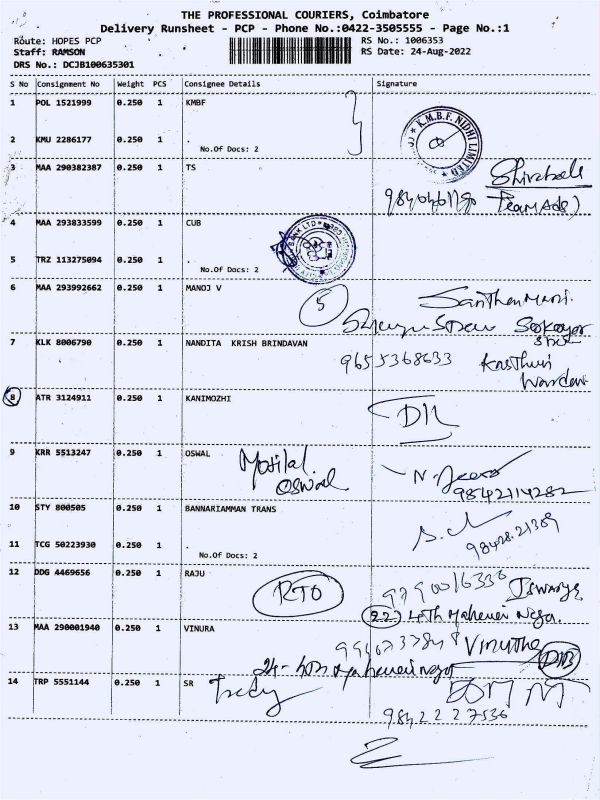 THE PROFESSIONAL COURIERS, Coimbatore
Delivery Runsheet - PCP - Phone No.:0422-3505555 - Page No.:1
Route: HOPES PCP
RS No.: 1006353
Staff: RAMSON
RS Date: 24-Aug-2022
DRS No.: DCJB100635301
S No Consignment No Weight PCS Consignee Details Signature
1 POL 1521999 0.250 1 KMBF
K.M.B.F. NIDHI LIMITED
2 KMU 2286177 0.250 1 .
No.Of Docs: 2
3 MAA 290382387 0.250 1 TS
4 MAA 293833599 0.250 1 CUB
BANK LTD
5 TRZ 113275094 0.250 1 .
No.Of Docs: 2
6 MAA 293992662 0.250 1 MANOJ V
5
7 KLK 8006790 0.250 1 NANDITA KRISH BRINDAVAN
9655368633
8 ATR 3124911 0.250 1 KANIMOZHI
9 KRR 5513247 0.250 1 OSWAL
Motilal
Oswal
9842114282
10 STY 800505 0.250 1 BANNARIAMMAN TRANS
98428.21389
11 TCG 50223930 0.250 1 .
No.Of Docs: 2
12 DDG 4469656 0.250 1 RAJU
RTO
9790016336
22
13 MAA 290001940 0.250 1 VINURA
Vinutha
14 TRP 5551144 0.250 1 SR
9842227536